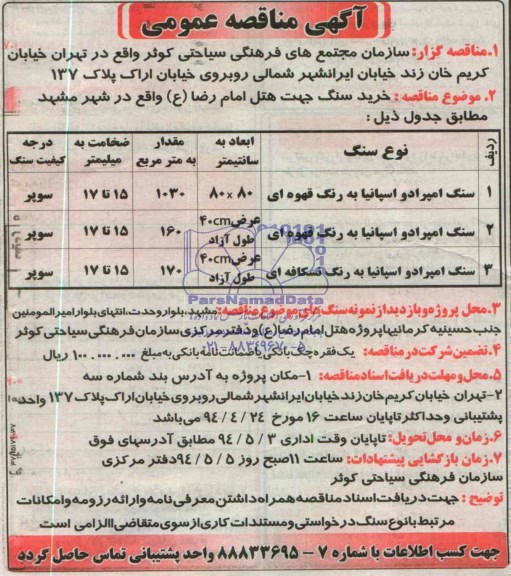 آگهی مناقصه عمومی
۱.مناقصه گزار: سازمان مجتمع های فرهنگی سیاحتی کوثر واقع در تهران خیابان
کریم خان زند خیابان ایرانشهر شمالی روبروی خیابان اراک پلاک ۱۳۷
۲. موضوع مناقصه : خرید سنگ جهت هتل امام رضا (ع) واقع در شهر مشهد
مطابق جدول ذیل :
ردیف نوع سنگ ابعاد به سانتیمتر مقدار به متر مربع ضخامت به میلیمتر درجه کیفیت سنگ
۱ سنگ امپرادو اسپانیا به رنگ قهوه ای ۸۰×۸۰ ۱۰۳۰ ۱۵ تا ۱۷ سوپر
۲ سنگ امپرادو اسپانیا به رنگ قهوه ای عرض۴۰cm طول آزاد ۱۶۰ ۱۵ تا ۱۷ سوپر
۳ سنگ امپرادو اسپانیا به رنگ نسکافه ای عرض۴۰cm طول آزاد ۱۷۰ ۱۵ تا ۱۷ سوپر
ParsNamadData
۰۲۱-۸۸۳۴۹۶۷۰-۵
۳. محل پروژه و بازدید از نمونه سنگ های موضوع مناقصه: مشهد، بلوار وحدت، انتهای بلوار امیرالمومنین
جنب حسینیه کرمانیها پروژه هتل امام رضا (ع) و دفتر مرکزی سازمان فرهنگی سیاحتی کوثر
۴. تضمین شرکت در مناقصه: یک فقره چک بانکی یا ضمانت نامه بانکی به مبلغ ۱۰۰.۰۰۰.۰۰۰ ریال
۵. محل و مهلت دریافت اسناد مناقصه: ۱-مکان پروژه به آدرس بند شماره سه
۲-تهران خیابان کریم خان زند خیابان ایرانشهر شمالی روبروی خیابان اراک پلاک ۱۳۷ واحد
پشتیبانی وحداکثر تا پایان ساعت ۱۶ مورخ ۹۴/۴/۲۴ می باشد
۶. زمان و محل تحویل: تا پایان وقت اداری ۹۴/۵/۳ مطابق آدرسهای فوق
۷. زمان بازگشایی پیشنهادات: ساعت ۱۱صبح روز ۹۴/۵/۵ دفتر مرکزی
سازمان فرهنگی سیاحتی کوثر
توضیح : جهت دریافت اسناد مناقصه همراه داشتن معرفی نامه و ارائه رزومه و امکانات
مرتبط با نوع سنگ درخواستی و مستندات کاری از سوی متقاضی الزامی است
جهت کسب اطلاعات با شماره ۷ - ۸۸۸۳۳۶۹۵ واحد پشتیبانی تماس حاصل گردد